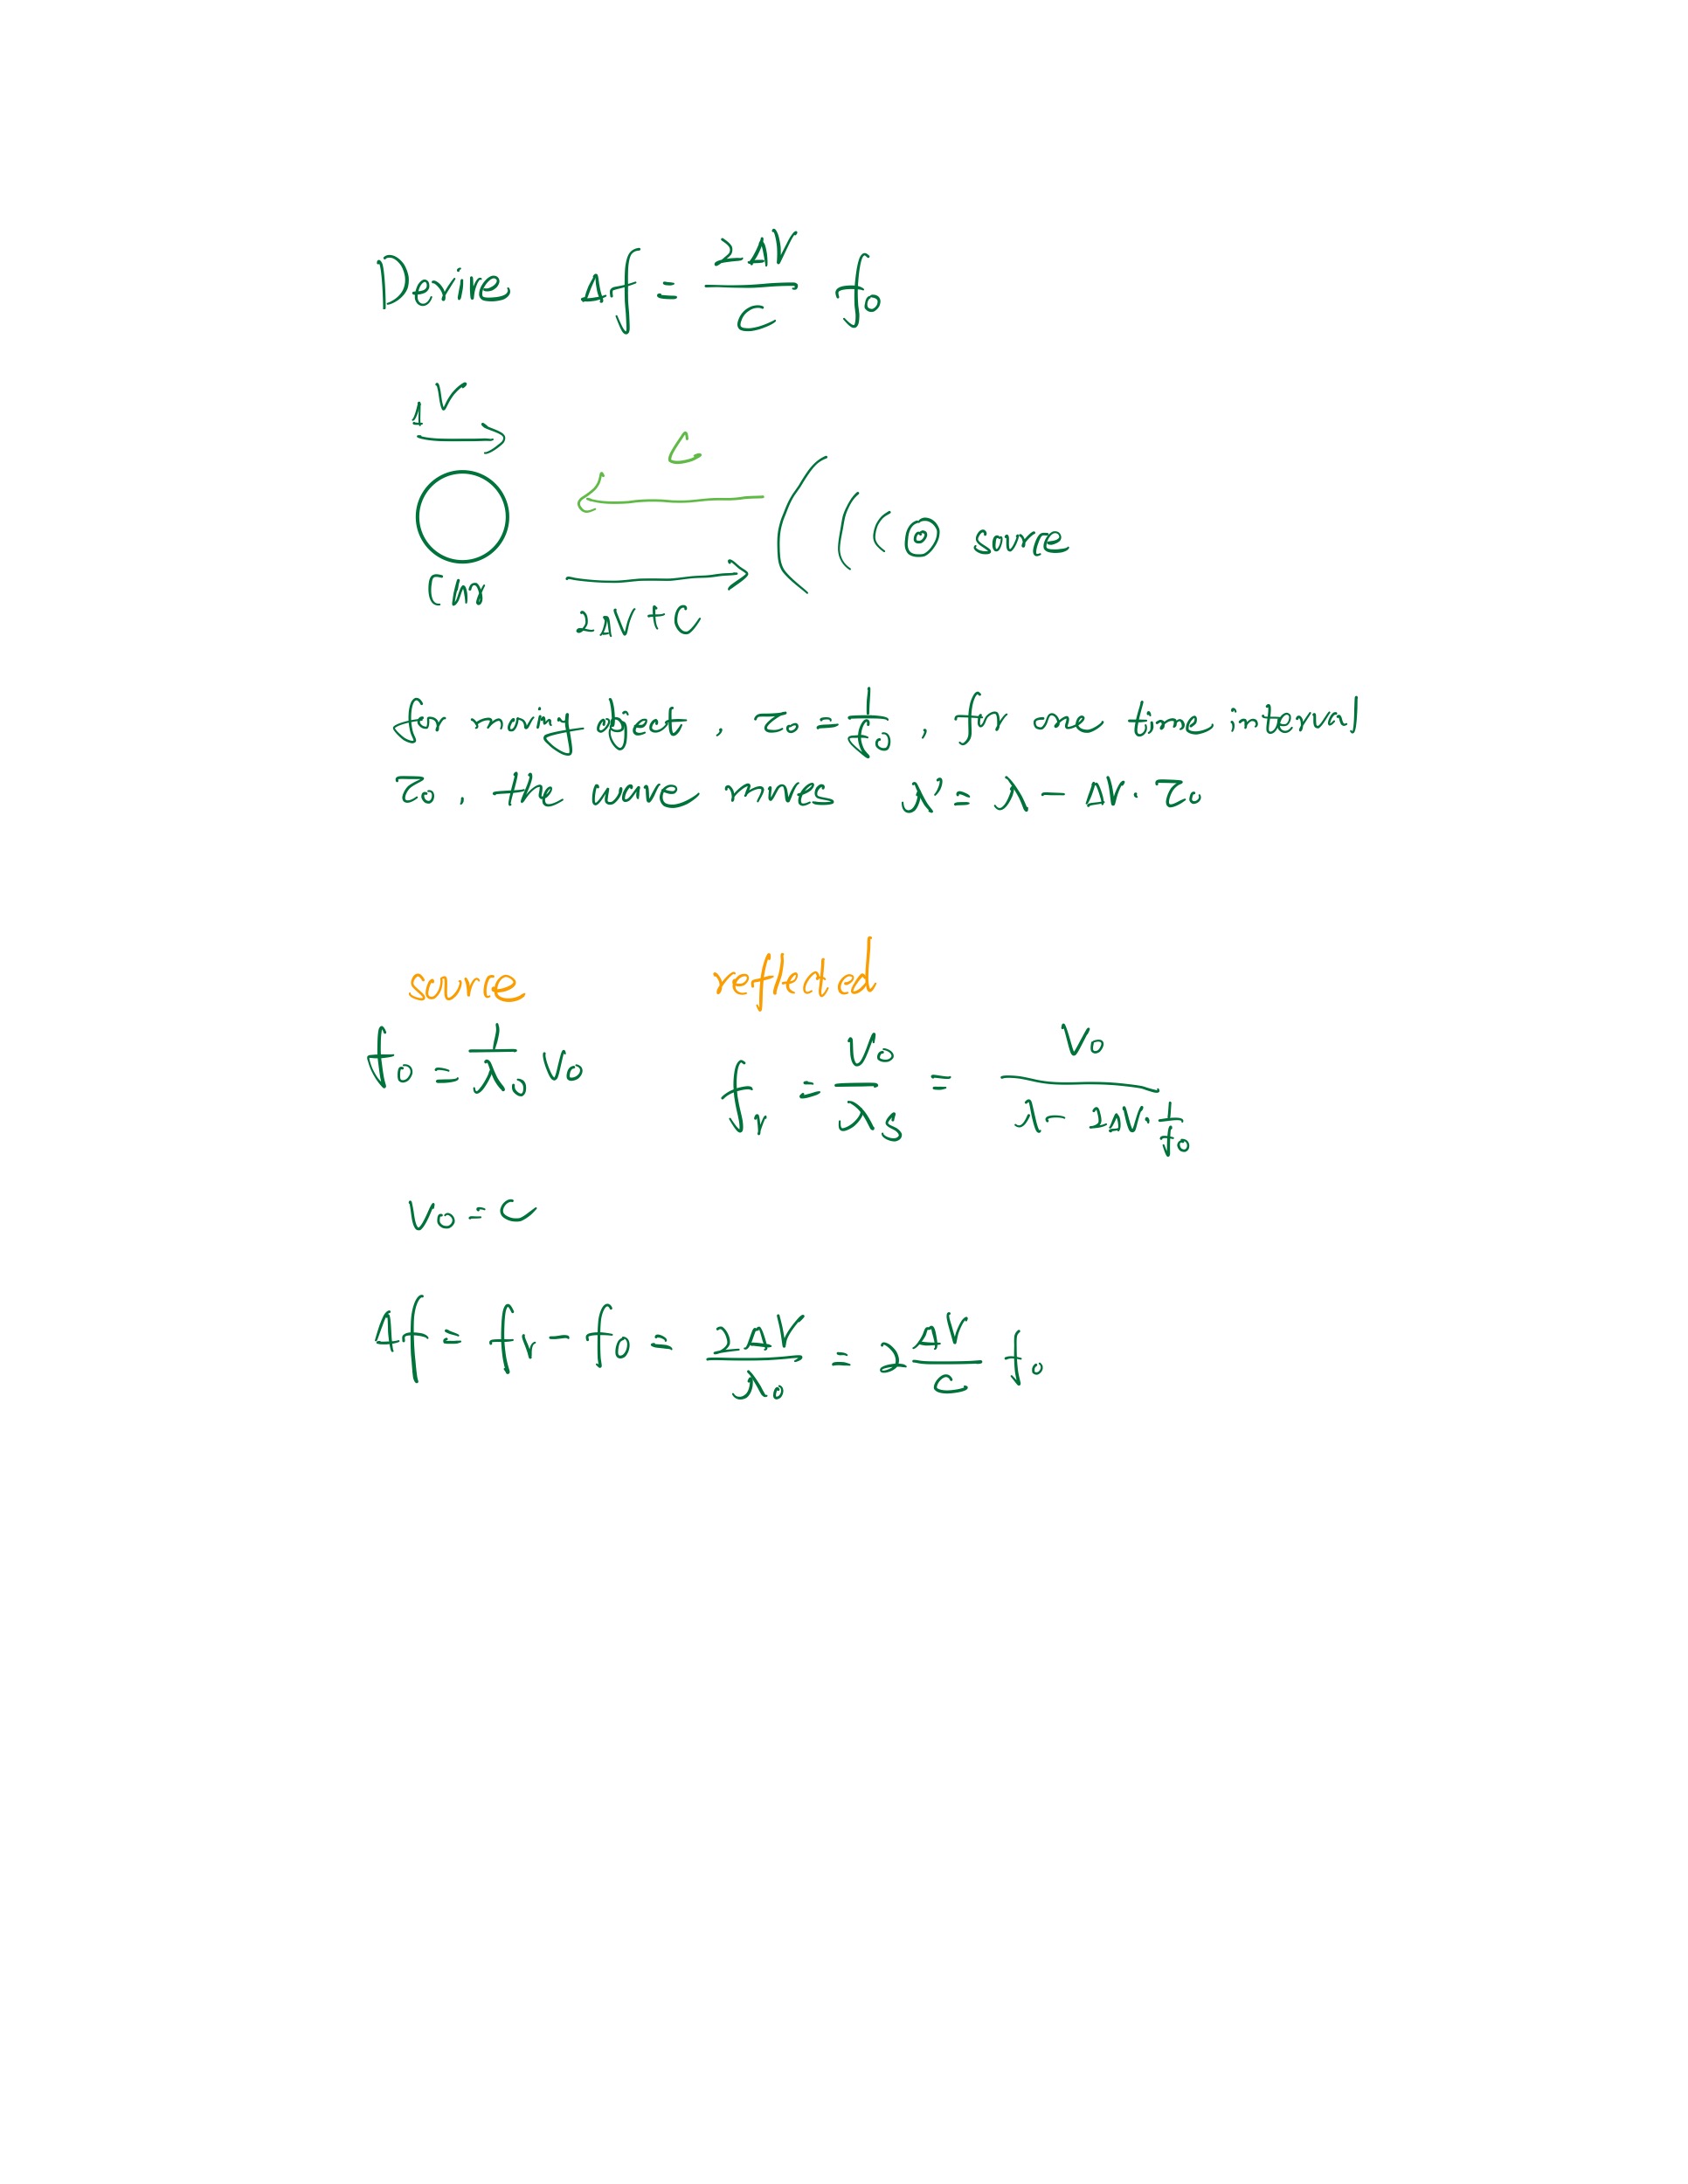 Derive Δf = 2ΔV/C f₀
ΔV
C
source
Car
2ΔV + C
for moving object, τ₀ = 1/f₀, for one time interval
τ₀, the wave moves λ' = λ - ΔV · τ₀
source reflected
f₀ = 1/λ₀ V₀
fᵣ = V₀/λₛ = V₀/(λ - 2ΔV · 1/f₀)
V₀ = C
Δf = fᵣ - f₀ = 2ΔV/λ₀ = 2 ΔV/C f₀